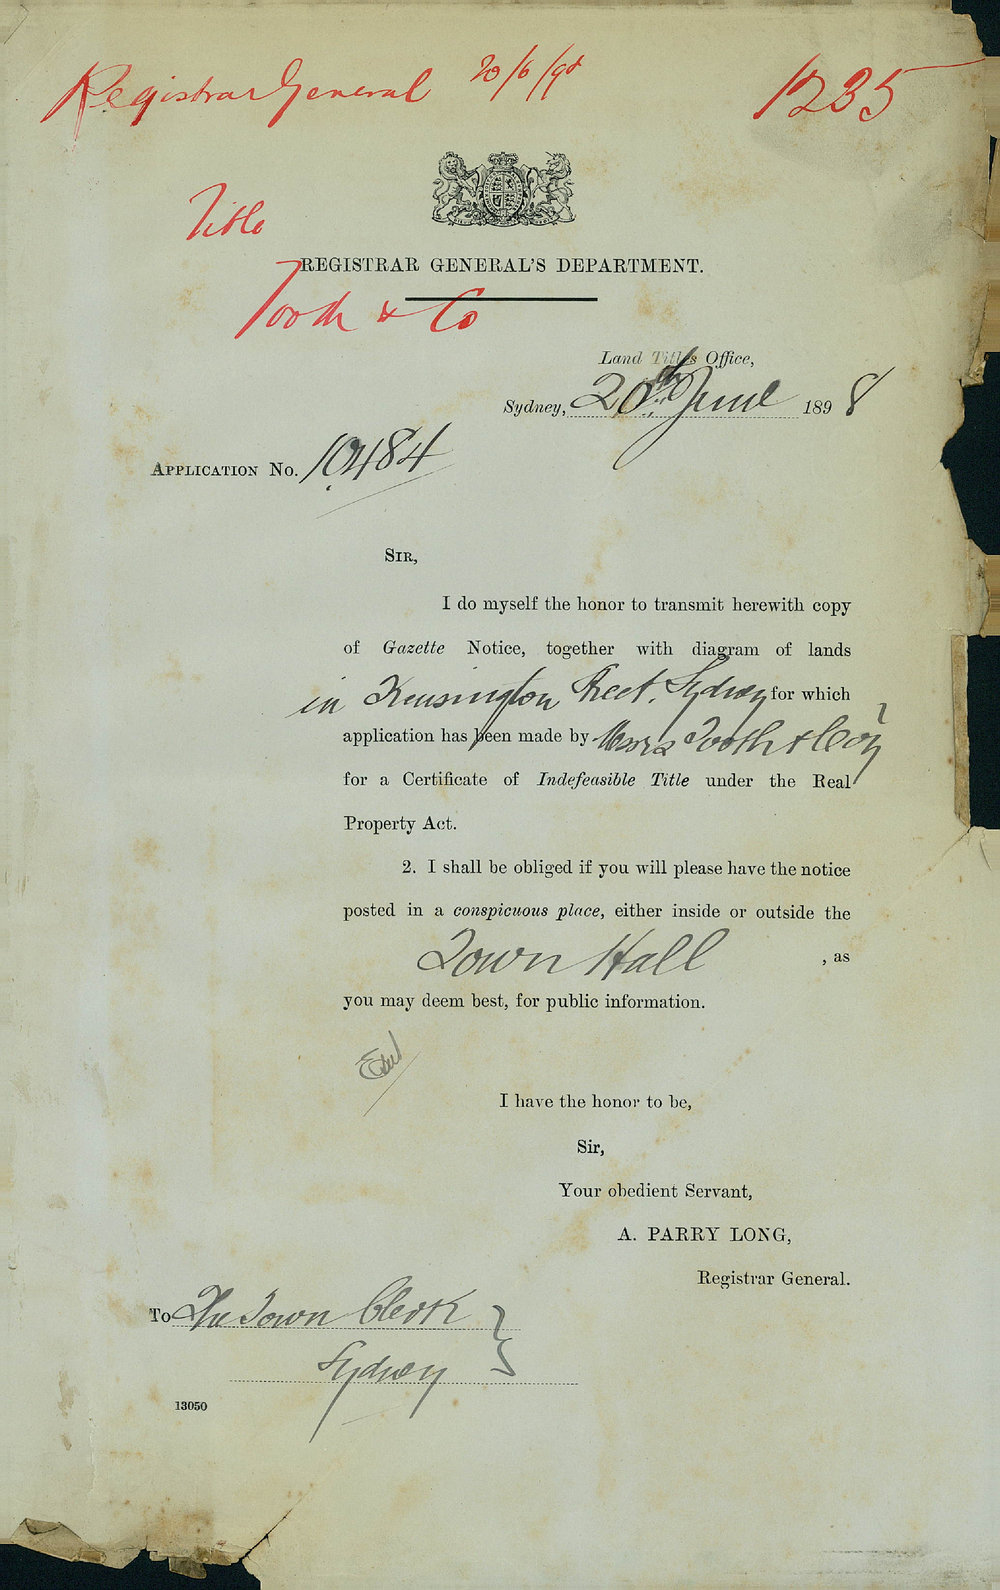 Registrar General 20/6/98
1235
Title
REGISTRAR GENERAL'S DEPARTMENT.
Tooth & Co
Land Titles Office,
Sydney, 20th June 1898
APPLICATION No. 10484
SIR,
I do myself the honor to transmit herewith copy
of Gazette Notice, together with diagram of lands
in Kensington Street, Sydney for which
application has been made by Messrs Tooth & Coy
for a Certificate of Indefeasible Title under the Real
Property Act.
2. I shall be obliged if you will please have the notice
posted in a conspicuous place, either inside or outside the
Town Hall , as
you may deem best, for public information.
I have the honor to be,
Sir,
Your obedient Servant,
A. PARRY LONG,
Registrar General.
To The Town Clerk
Sydney
13050